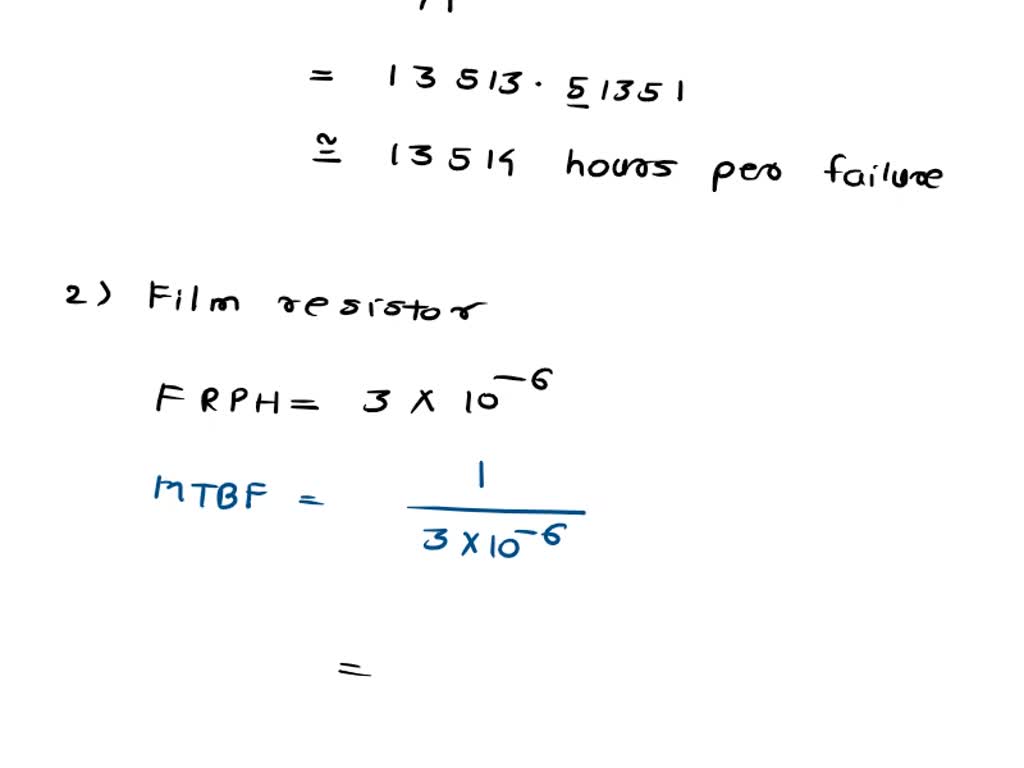 = 13513.51351
≅ 13514 hours per failure
2) Film resistor
FRPH = 3 × 10⁻⁶
MTBF = 1 / 3 × 10⁻⁶
=